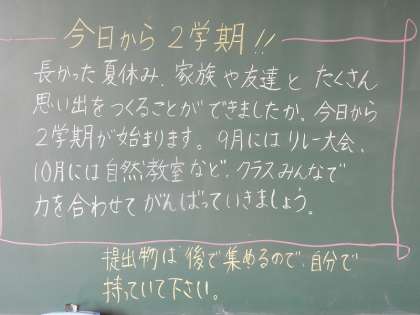 今日から2学期!!
長かった夏休み、家族や友達とたくさん
思い出をつくることができましたか。今日から
2学期が始まります。9月にはリレー大会、
10月には自然教室など、クラスみんなで
力を合わせてがんばっていきましょう。
提出物は後で集めるので、自分で
持っていて下さい。